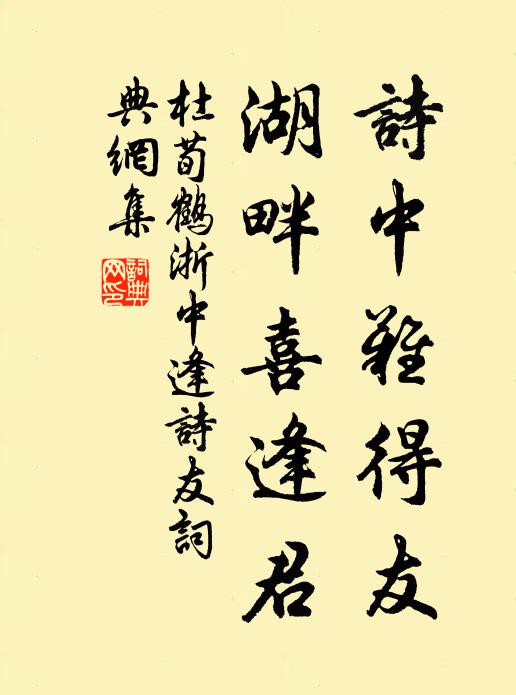 詩中難得友
湖畔喜逢君
杜荀鶴浙中逢詩友詞
典網集
詞典
网印